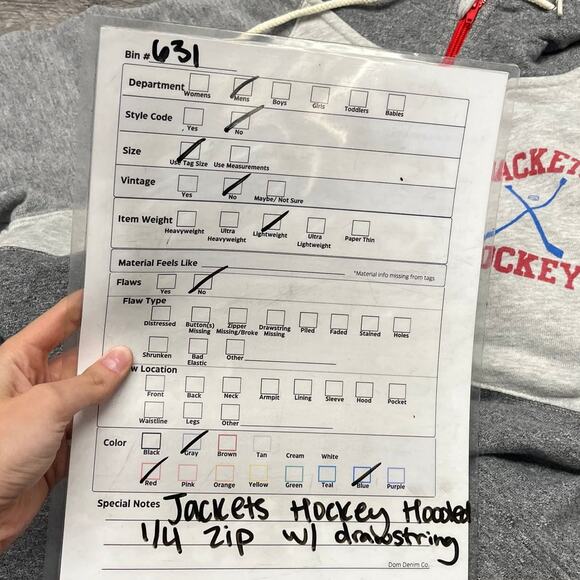 Bin # 631
Department Womens Mens Boys Girls Toddlers Babies
Style Code Yes No
Size Use Tag Size Use Measurements
Vintage Yes No Maybe/ Not Sure
Item Weight Heavyweight Ultra Heavyweight Lightweight Ultra Lightweight Paper Thin
Material Feels Like *Material info missing from tags
Flaws Yes No
Flaw Type
Distressed Button(s) Missing Zipper Missing/Broke Drawstring Missing Piled Faded Stained Holes
Shrunken Bad Elastic Other
w Location
Front Back Neck Armpit Lining Sleeve Hood Pocket
Waistline Legs Other
Color Black Gray Brown Tan Cream White
Red Pink Orange Yellow Green Teal Blue Purple
Special Notes Jackets Hockey Hooded
1/4 Zip w/ drawstring
Dom Denim Co.
ACKET
OCKEY